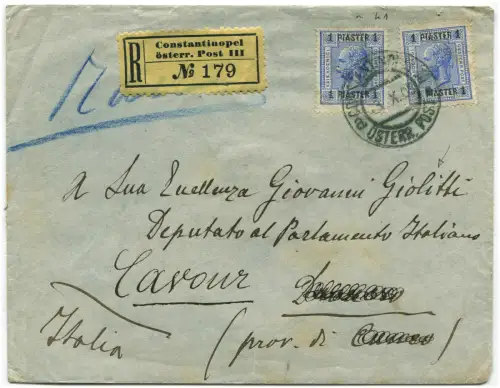 41
Constantinopel
österr. Post III
R
№ 179
1 PIASTER 1
1 PIASTER 1
1 PIASTER 1
1 PIASTER 1
ÖSTERR. POST
X
A Sua Eccellenza Giovanni Giolitti
Deputato al Parlamento Italiano
Cavour
Italia
(prov. di